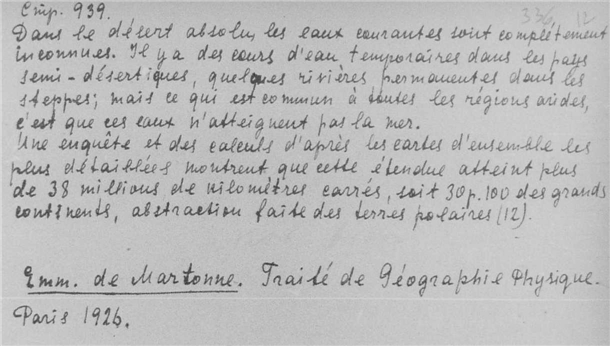 Стр. 939.
336, 12
Dans le désert absolu, les eaux courantes sont complètement
inconnues. Il y a des cours d'eau temporaires dans les pays
semi-désertiques, quelques rivières permanentes dans les
steppes; mais ce qui est commun à toutes les régions arides,
c'est que ces eaux n'atteignent pas la mer.
Une enquête et des calculs d'après les cartes d'ensemble les
plus détaiblées montrent que cette étendue atteint plus
de 38 millions de kilomètres carrés, soit 30 p. 100 des grands
continents, abstraction faite des terres polaires (12).
Emm. de Martonne. Traité de Géographie Physique.
Paris 1926.